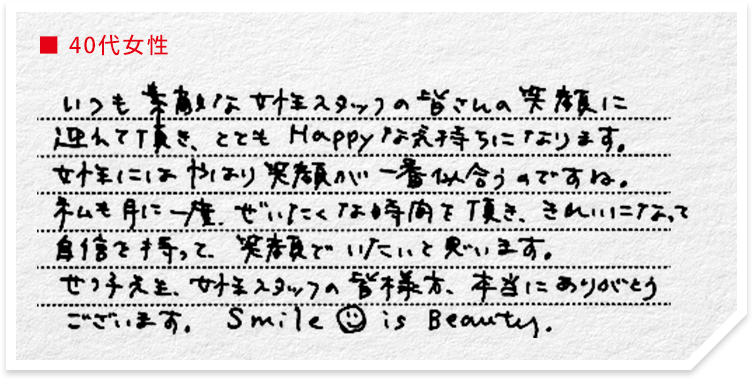 ■ 40代女性
いつも素敵な女性スタッフの皆さんの笑顔に
迎えて頂き、とても Happyな気持ちになります。
女性にはやはり笑顔が一番似合うのですね。
私も月に一度、ぜいたくな時間を頂き、きれいになって
自信を持って、笑顔でいたいと思います。
せつ子先生、女性スタッフの皆様方、本当にありがとう
ございます。 Smile ☺ is Beauty.